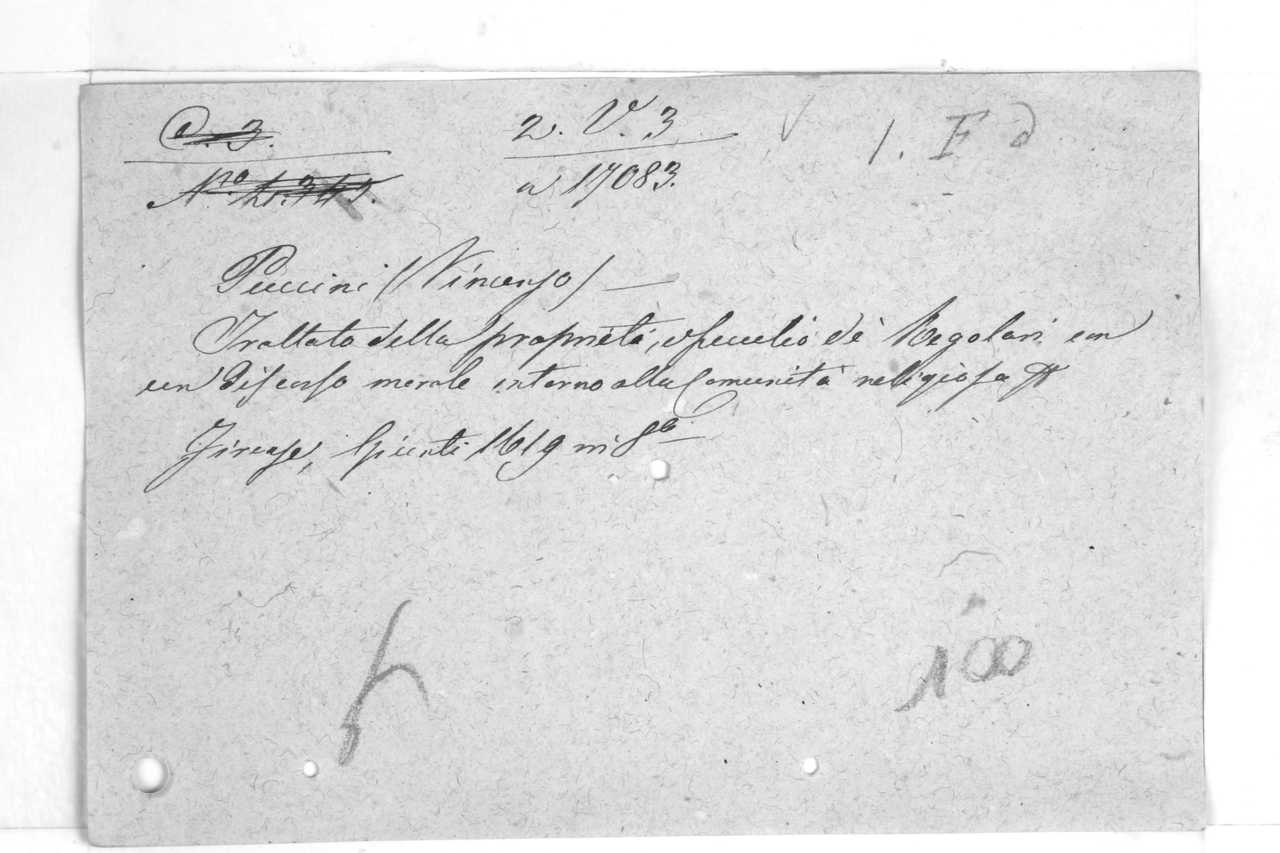 C. 3. 2. V. 3 1. F d
Nro. a 17083.
Puccini (Vincenzo) —
Trattato della proprietà, e peculio de' Regolari con
un discorso morale intorno alla Comunità religiosa
Firenze, Giunti 1619 in 8o
100